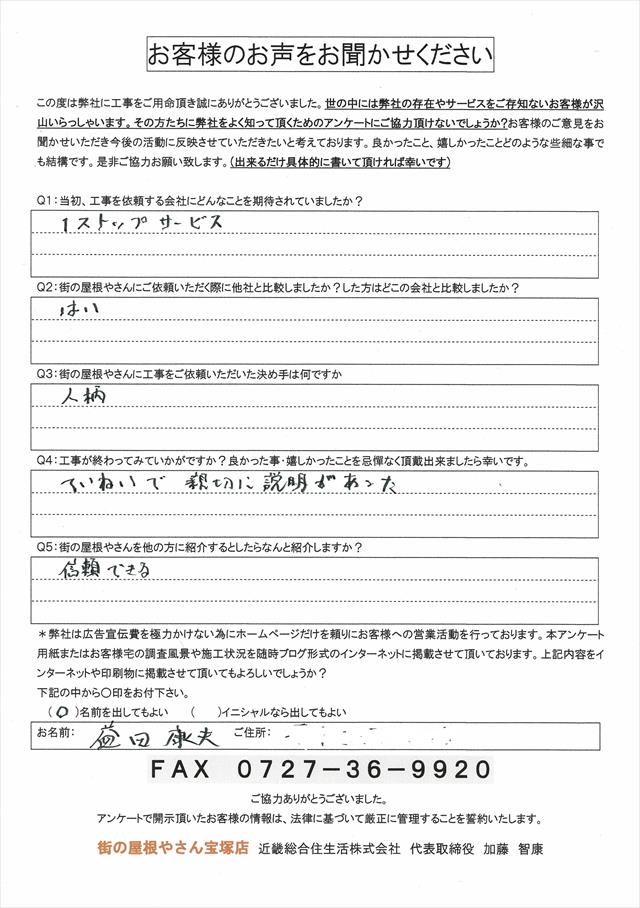 お客様のお声をお聞かせください
この度は弊社に工事をご用命頂き誠にありがとうございました。世の中には弊社の存在やサービスをご存知ないお客様が沢
山いらっしゃいます。その方たちに弊社をよく知って頂くためのアンケートにご協力頂けないでしょうか?お客様のご意見をお
聞かせいただき今後の活動に反映させていただきたいと考えております。良かったこと、嬉しかったことどのような些細な事で
も結構です。是非ご協力お願い致します。(出来るだけ具体的に書いて頂ければ幸いです)
Q1:当初、工事を依頼する会社にどんなことを期待されていましたか?
1ストップサービス
Q2:街の屋根やさんにご依頼いただく際に他社と比較しましたか?した方はどこの会社と比較しましたか?
はい
Q3:街の屋根やさんに工事をご依頼いただいた決め手は何ですか
人柄
Q4:工事が終わってみていかがですか?良かった事・嬉しかったことを忌憚なく頂戴出来ましたら幸いです。
ていねいで 親切に説明があった
Q5:街の屋根やさんを他の方に紹介するとしたらなんと紹介しますか?
信頼できる
*弊社は広告宣伝費を極力かけない為にホームページだけを頼りにお客様への営業活動を行っております。本アンケート
用紙またはお客様宅の調査風景や施工状況を随時ブログ形式のインターネットに掲載させて頂いております。上記内容をイ
ンターネットや印刷物に掲載させて頂いてもよろしいでしょうか?
下記の中から〇印をお付下さい。
(○)名前を出してもよい ( )イニシャルなら出してもよい
お名前: 益田 康夫 ご住所:
FAX 0727-36-9920
ご協力ありがとうございました。
アンケートで開示頂いたお客様の情報は、法律に基づいて厳正に管理することを誓約いたします。
街の屋根やさん宝塚店 近畿総合住生活株式会社 代表取締役 加藤 智康